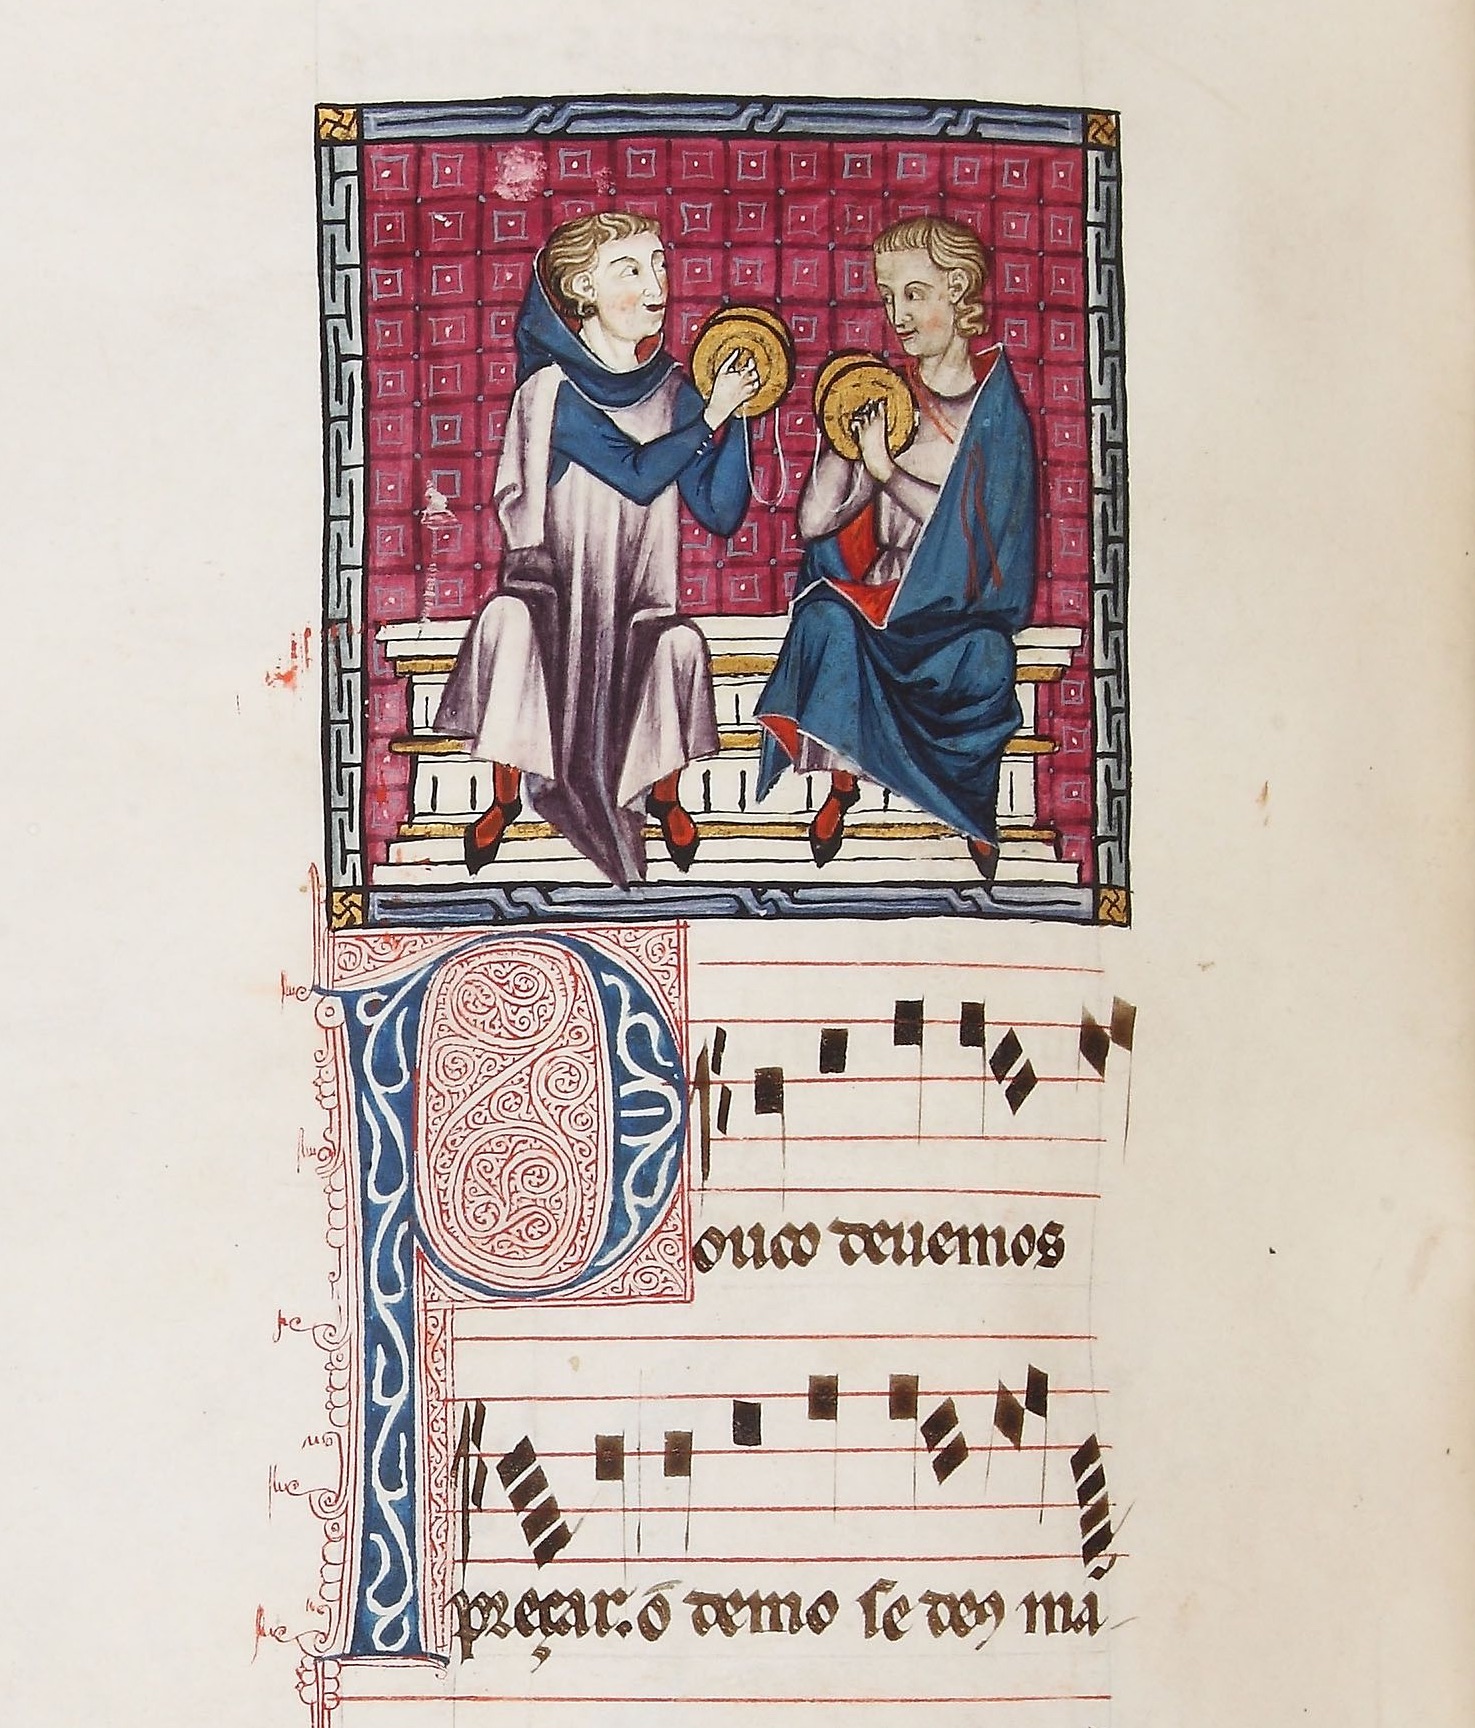 Pouco deuemos
preçar. o demo se deꝯ mã